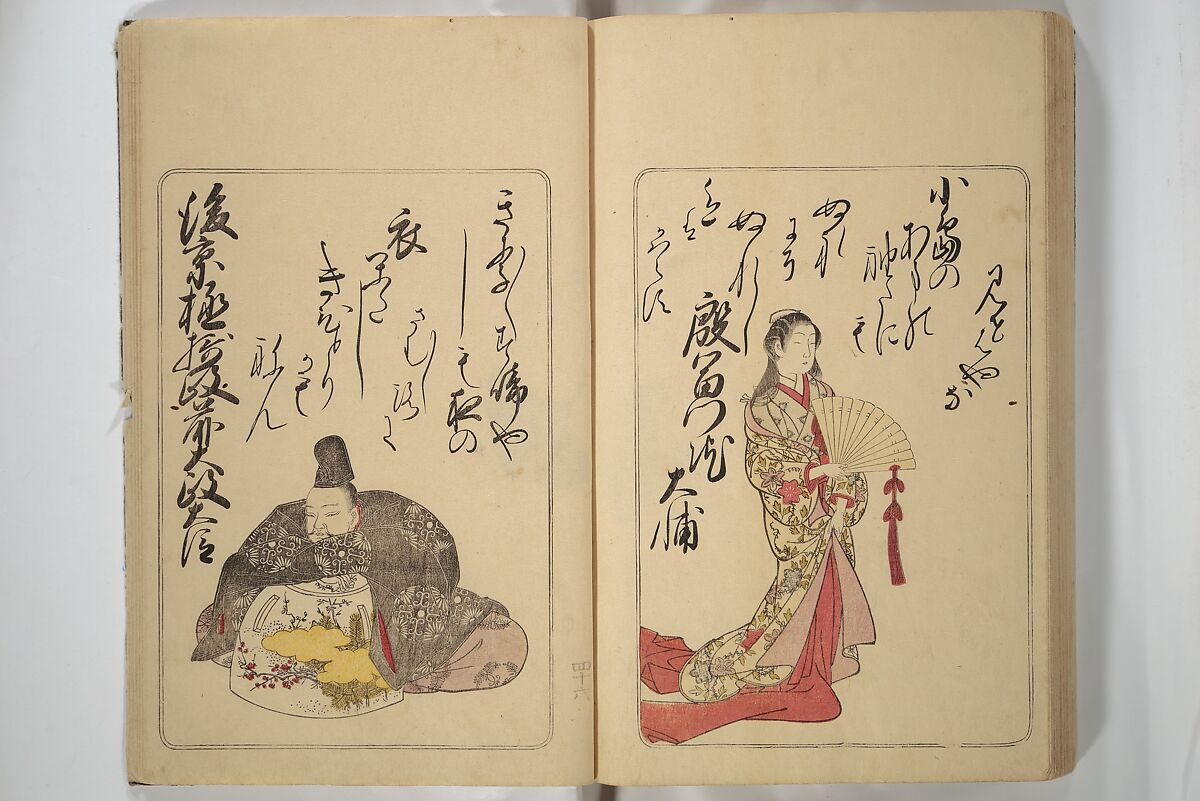 見せはやな
小嶋の
あまの
袖たに
も
ぬれ
にそ
ぬれし
色は
かはらす
殷富門院
大輔
きり〱す啼や
しも夜の
さむしろに
衣
かたし
きひとり
かも
ねん
後京極摂政前太政大臣
四十六